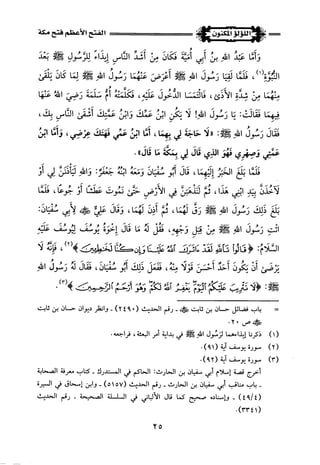 اللؤلؤ المكنون
الفتح الأعظم فتح مكة
وَأَمَّا عَبْدُ اللهِ بنُ أَبِي أُمَيَّةَ فَكَانَ مِنْ أَشَدِّ النَّاسِ إِيذَاءً لِلرَّسُولِ ﷺ بَعْدَ
النُّبُوَّةِ(١)، فَلَمَّا لَقِيَا رَسُولَ اللهِ ﷺ أَعْرَضَ عَنْهُمَا رَسُولُ اللهِ ﷺ لِمَا كَانَ يَلْقَى
مِنْهُمَا مِنْ شِدَّةِ الْأَذَى، فَالْتَمَسَا الدُّخُولَ عَلَيْهِ، فَكَلَّمَتْهُ أُمُّ سَلَمَةَ رَضِيَ اللهُ عَنْهَا
فِيهِمَا فَقَالَتْ: يَا رَسُولَ اللهِ! لَا يَكُنِ ابْنُ عَمِّكَ وَابْنُ عَمَّتِكَ أَشْقَى النَّاسِ بِكَ،
فَقَالَ رَسُولُ اللهِ ﷺ: «لَا حَاجَةَ لِي بِهِمَا، أَمَّا ابْنُ عَمِّي فَهَتَكَ عِرْضِي، وَأَمَّا ابْنُ
عَمَّتِي وَصِهْرِي فَهُوَ الَّذِي قَالَ لِي بِمَكَّةَ مَا قَالَ».
فَلَمَّا بَلَغَ الْخَبَرُ إِلَيْهِمَا، قَالَ أَبُو سُفْيَانَ وَمَعَهُ ابْنُهُ جَعْفَرٌ: وَاللهِ لَيَأْذَنَنَّ لِي أَوْ
لَآخُذَنَّ بِيَدِ ابْنِي هَذَا، ثُمَّ لَنَذْهَبَنَّ فِي الْأَرْضِ حَتَّى نَمُوتَ عَطَشًا أَوْ جُوعًا، فَلَمَّا
بَلَغَ ذَلِكَ رَسُولَ اللهِ ﷺ رَقَّ لَهُمَا، ثُمَّ أَذِنَ لَهُمَا، وَقَالَ عَلِيٌّ ﷺ لِأَبِي سُفْيَانَ:
ائْتِ رَسُولَ اللهِ ﷺ مِنْ قِبَلِ وَجْهِهِ، فَقُلْ لَهُ مَا قَالَ إِخْوَةُ يُوسُفَ لِيُوسُفَ عَلَيْهِ
السَّلَامُ: ﴿قَالُوا تَاللَّهِ لَقَدْ آثَرَكَ اللَّهُ عَلَيْنَا وَإِن كُنَّا لَخَاطِئِينَ﴾(٢)، فَإِنَّهُ لَا
يَرْضَى أَنْ يَكُونَ أَحَدٌ أَحْسَنَ قَوْلًا مِنْهُ، فَفَعَلَ ذَلِكَ أَبُو سُفْيَانَ، فَقَالَ لَهُ رَسُولُ اللهِ
ﷺ: ﴿لَا تَثْرِيبَ عَلَيْكُمُ الْيَوْمَ يَغْفِرُ اللَّهُ لَكُمْ وَهُوَ أَرْحَمُ الرَّاحِمِينَ﴾(٣).
= باب فضائل حسان بن ثابت ﷺ - رقم الحديث (٢٤٩٠) - وانظر ديوان حسان بن ثابت
ﷺ ص ٢٠.
(١) ذكرنا إيذاءهما لرسول الله ﷺ في بداية أمر البعثة، فراجعه.
(٢) سورة يوسف آية (٩١).
(٣) سورة يوسف آية (٩٢).
أخرج قصة إسلام أبي سفيان بن الحارث: الحاكم في المستدرك - كتاب معرفة الصحابة
- باب مناقب أبي سفيان بن الحارث - رقم الحديث (٥١٥٧) - وابن إسحاق في السيرة
(٤٩/٤)، وإسناده صحيح كما قال الألباني في السلسلة الصحيحة - رقم الحديث
(٣٣٤١).
٢٥